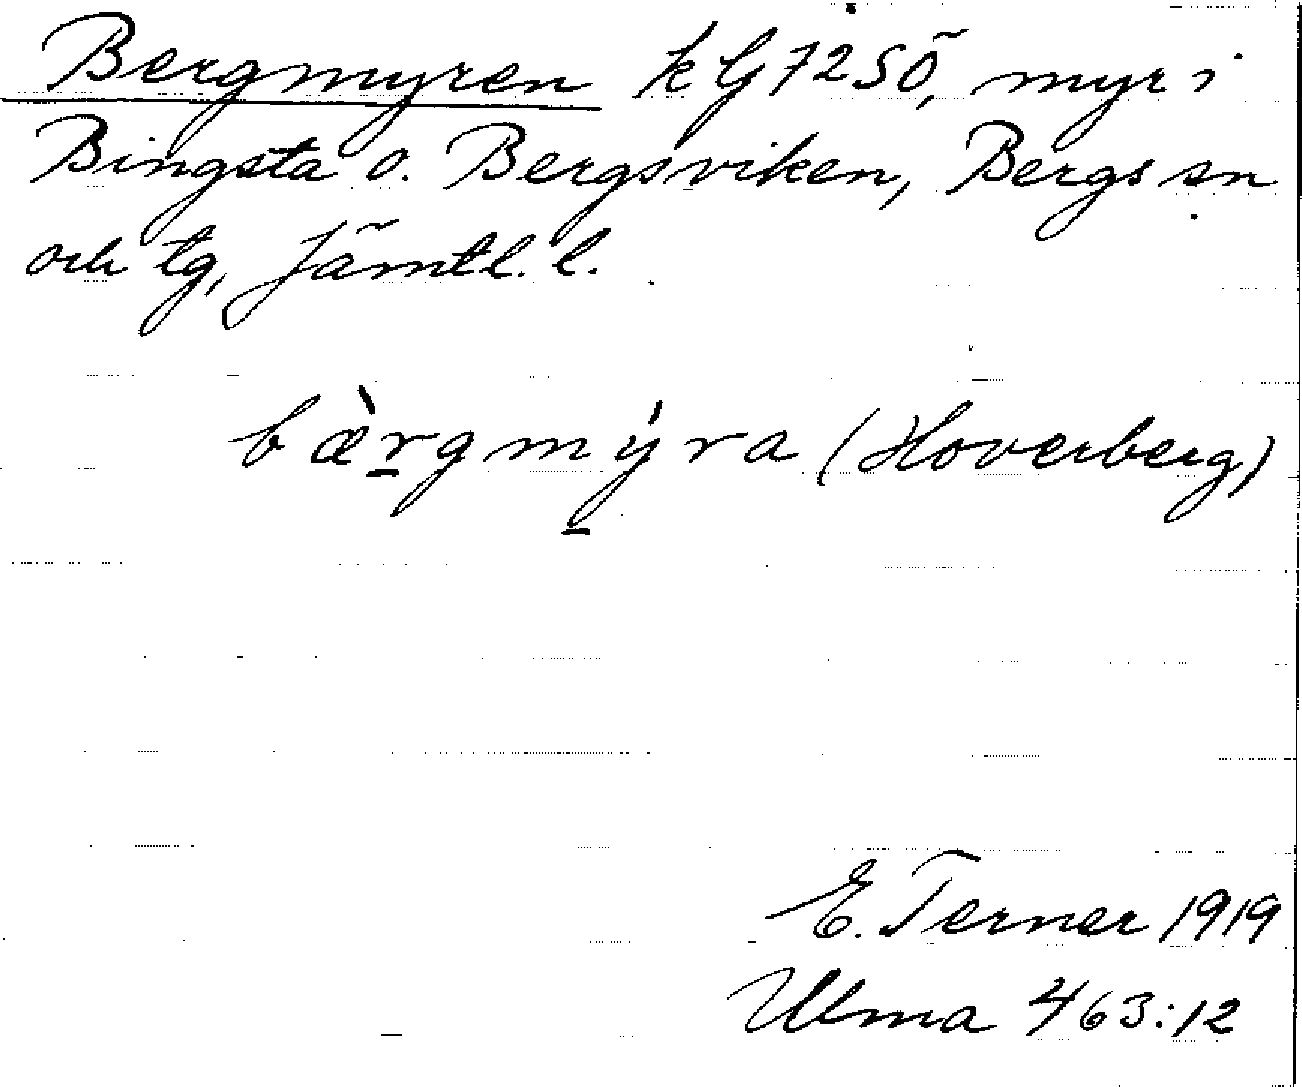 Bergmyren k G 72 SÖ, myr i
Bingsta o. Bergsviken, Bergs sn
och tg, Jämtl. l.
bæ̀r̠gmý̠ra (Hoverberg)
E. Terner 1919
Ulma 463:12